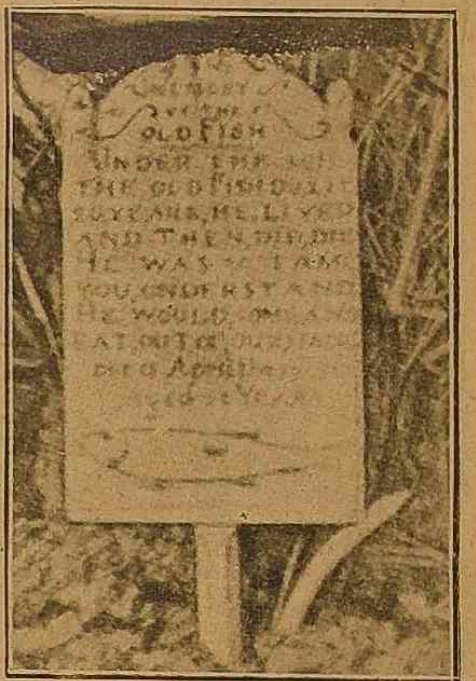 MEMORY
OF THE
OLD FISH
UNDER THE SOIL
THE OLD FISH DO LIE
20 YEARS, HE, LIVED
AND THEN, DID, DIE
HE WAS SO TAME
YOU, UNDERSTAND
HE WOULD, COME, AND
EAT, OUT OF, YOUR, HAND
DIED APRIL
AGED 20 YEARS